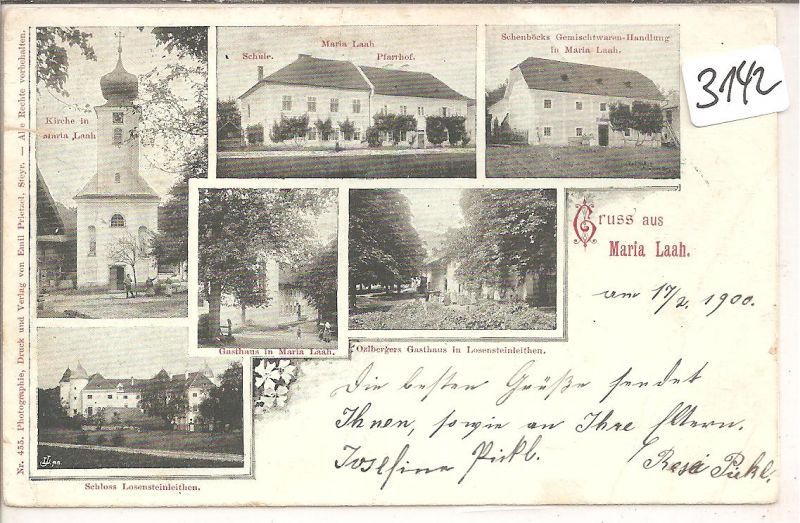 Nr. 455. Photographie, Druck und Verlag von Emil Prietzel, Steyr. — Alle Rechte vorbehalten.
Kirche in
Maria Laah
Maria Laah
Schule. Pfarrhof.
Schenböcks Gemischtwaren-Handlung
in Maria Laah.
3142
Gruss aus
Maria Laah.
am 17/2. 1900.
Gasthaus in Maria Laah.
Ozlbergers Gasthaus in Losensteinleithen.
Die besten Grüße sendet
Ihnen, sowie an Ihre Eltern.
Josefine Pickl.
Resi Pickl.
Schloss Losensteinleithen.